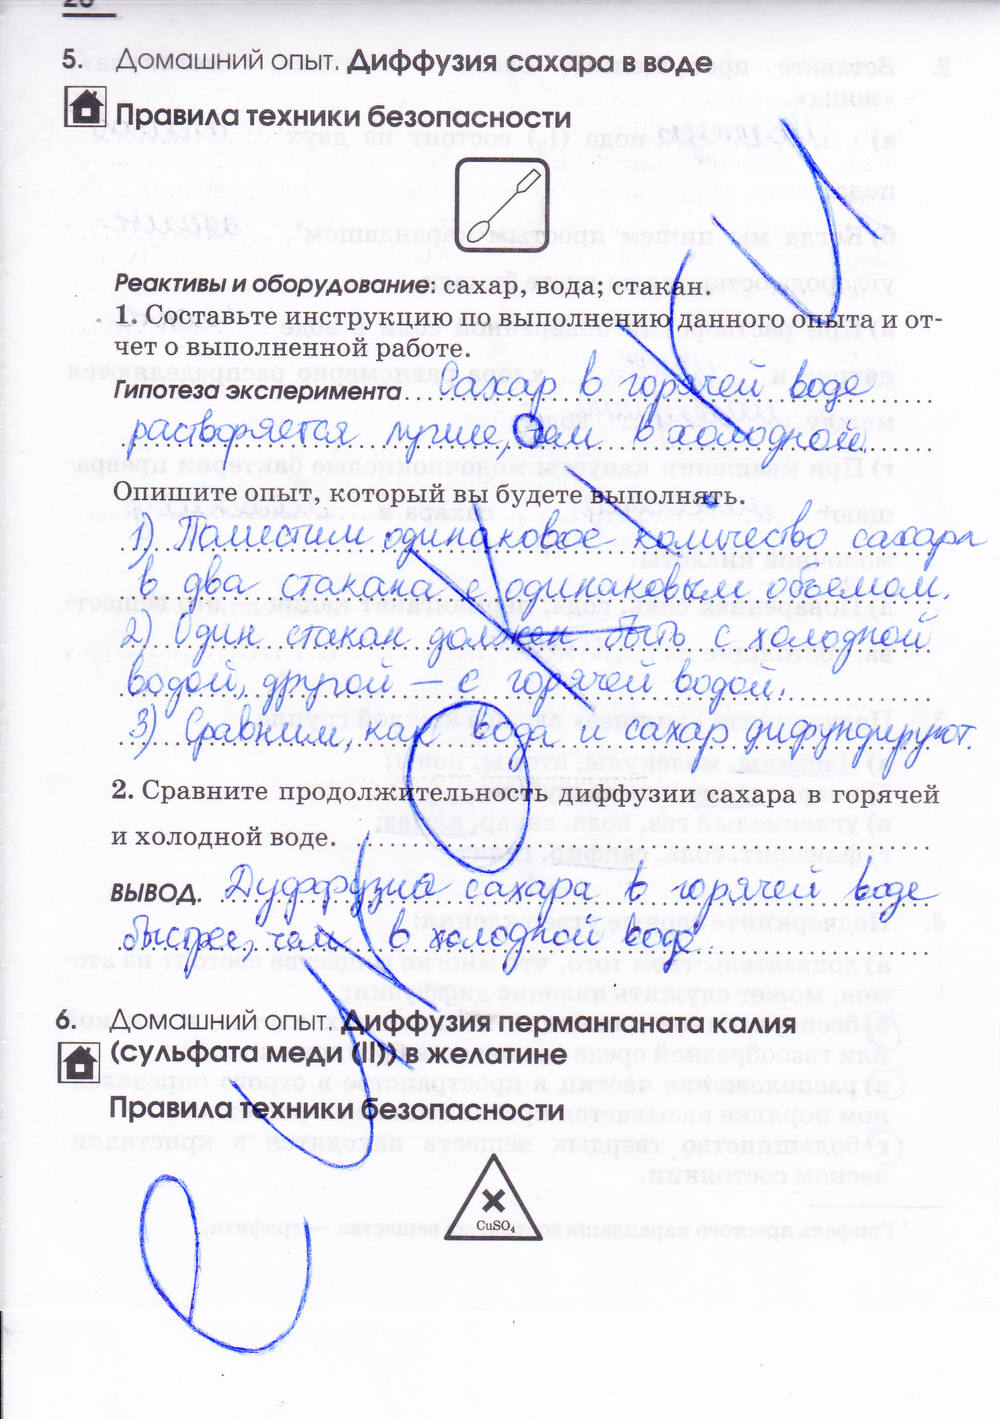 5. Домашний опыт. Диффузия сахара в воде
Правила техники безопасности
Реактивы и оборудование: сахар, вода; стакан.
1. Составьте инструкцию по выполнению данного опыта и от-
чет о выполненной работе.
Гипотеза эксперимента Сахар в горячей воде
растворяется лучше, чем в холодной.
Опишите опыт, который вы будете выполнять.
1) Поместим одинаковое количество сахара
в два стакана с одинаковым объемом.
2) Один стакан должен быть с холодной
водой, другой — с горячей водой.
3) Сравним, как вода и сахар дифундируют.
2. Сравните продолжительность диффузии сахара в горячей
и холодной воде.
ВЫВОД. Дуффузия сахара в горячей воде
быстрее, чем в холодной воде.
6. Домашний опыт. Диффузия перманганата калия
(сульфата меди (II)) в желатине
Правила техники безопасности
CuSO₄